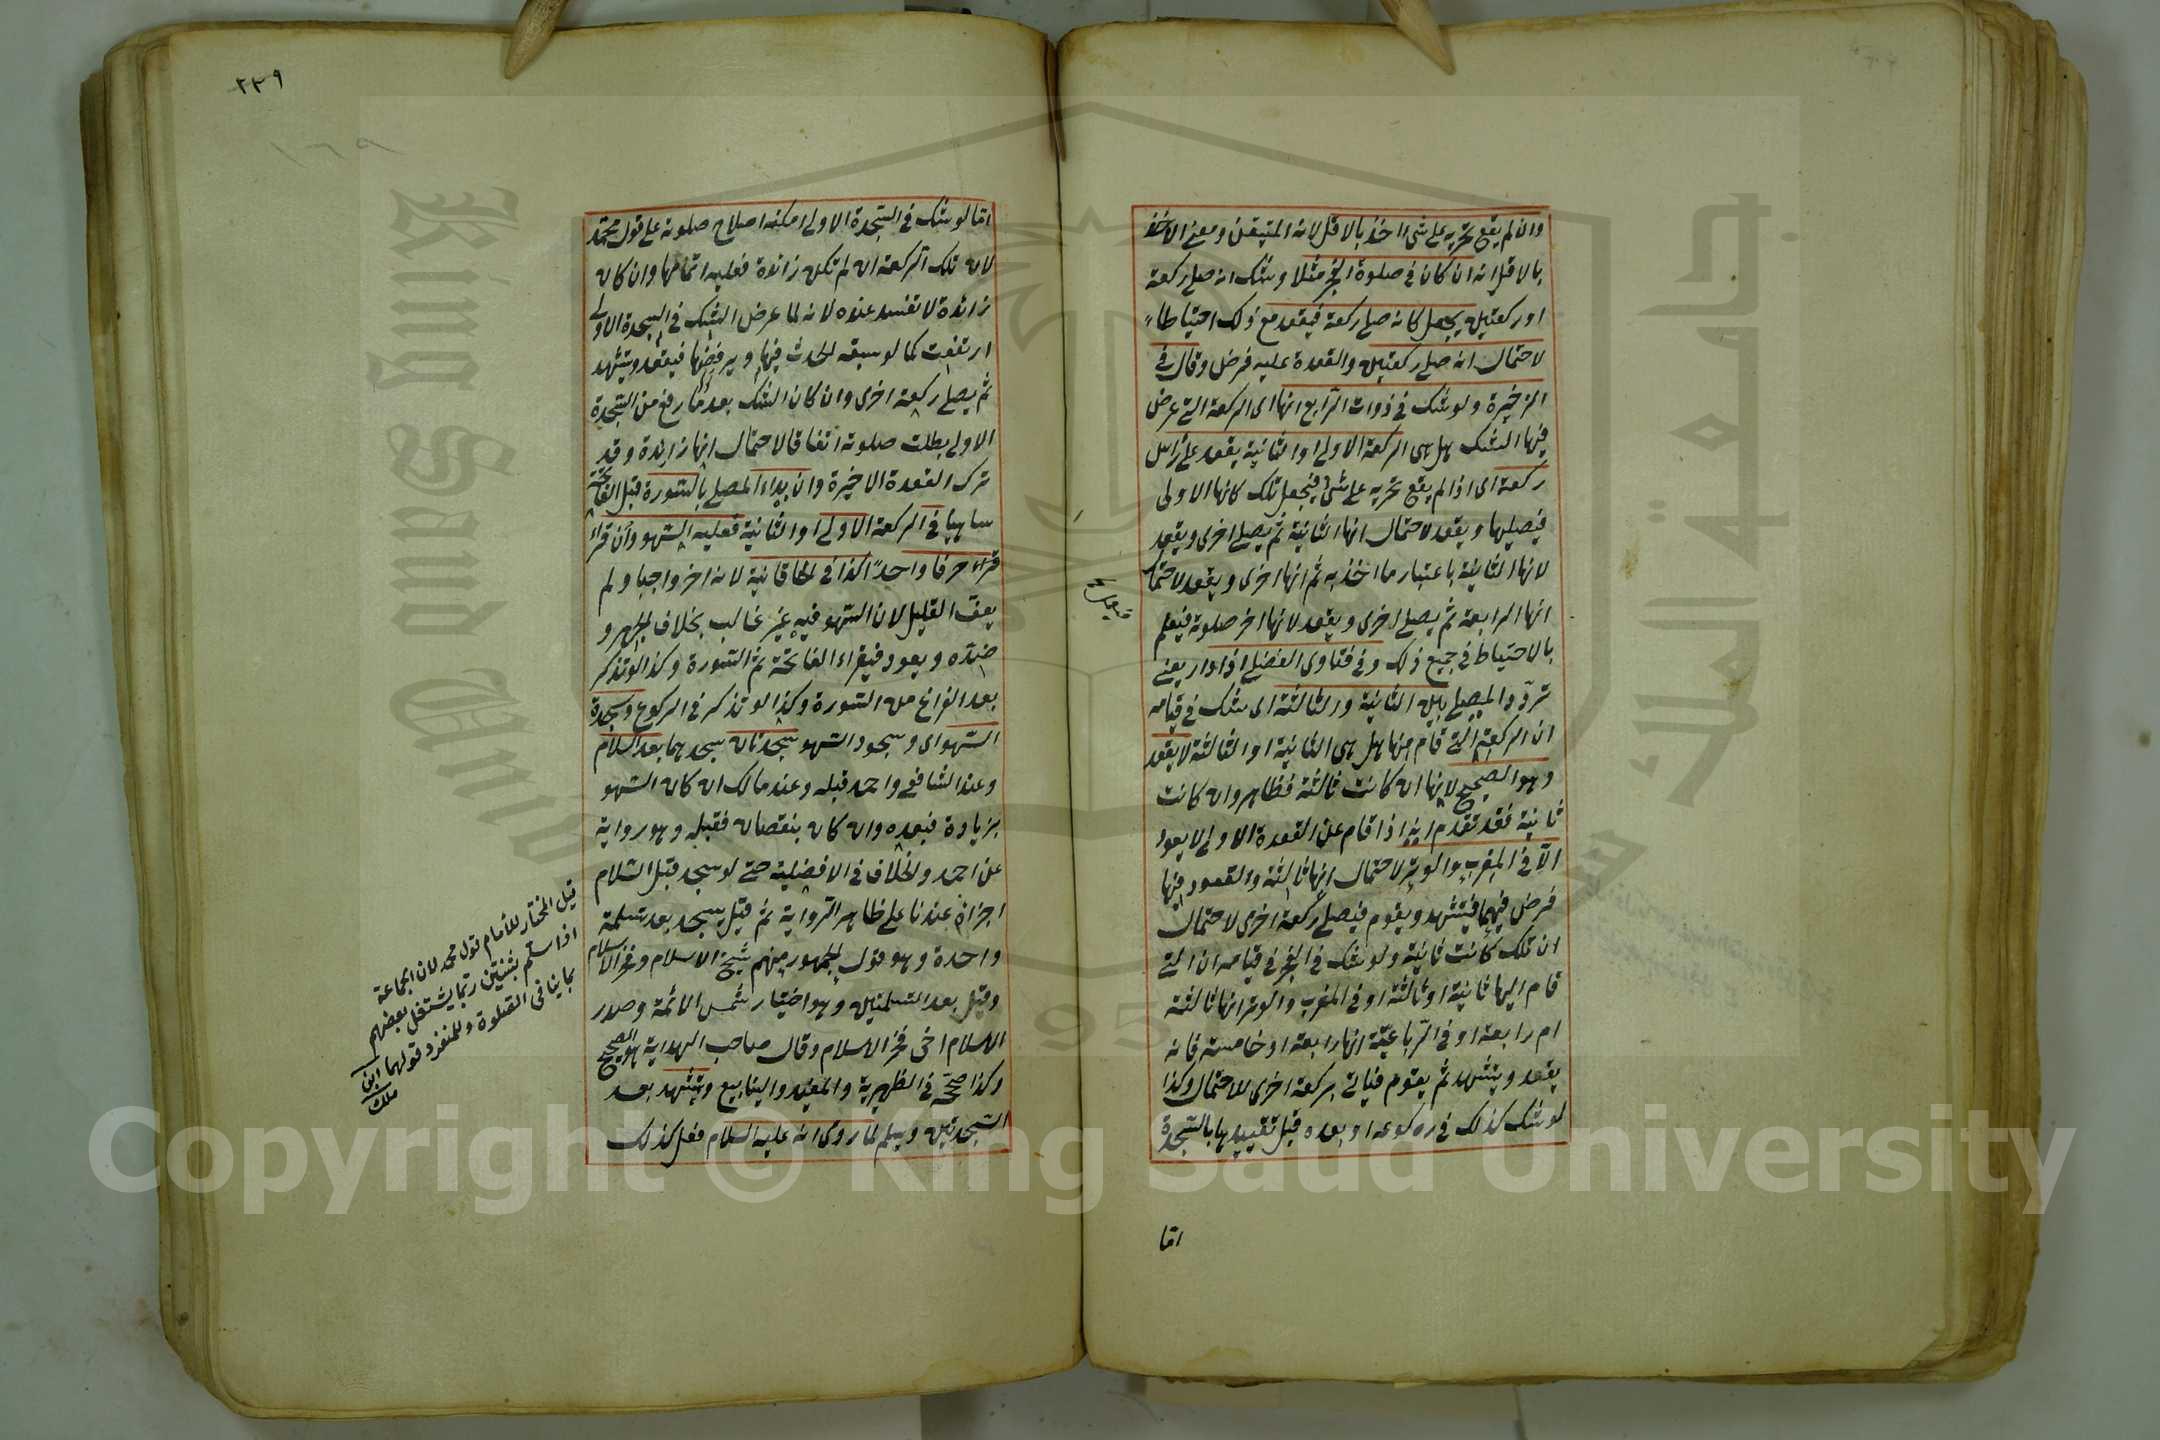 وان لم يقع تحريه على شئ اخذ بالاقل لانه المتيقن ومعنى الاخذ
بالاقل انه ان كان في صلوة الفجر مثلا وشك انه صلى ركعة
او ركعتين يجعل كانه صلى ركعة فيقعد مع ذلك احتياطا
لاحتمال انه صلى ركعتين والقعدة عليه فرض وقال في
الذخيرة ولو شك في ذوات الاربع انها اى الركعة التي عرض
فيها الشك هل هي الركعة الاولى او الثانية يقعد على رأس
ركعة اى اذا لم يقع تحريه على شئ فيجعل تلك كانها الاولى
فيصليها ويقعد لاحتمال انها الثانية ثم يصلى اخرى ويقعد
لانها الثانية باعتبار ما اخذ به ثم انها اخرى ويقعد لاحتمال
انها الرابعة ثم يصلى اخرى ويقعد لانها اخر صلوته فيعلم
بالاحتياط في جميع ذلك وفي فتاوى الفضلي اذا دار يعنى
تردد المصلى بين الثانية والثالثة اى شك في قيامه
ان الركعة التي قام منها هل هي الثانية او الثالثة لا يقعد
وهو الصحيح لانها ان كانت ثالثة فظاهر وان كانت
ثانية فقد تقدم انه اذا قام عن القعدة الاولى لا يعود
الا في المغرب والوتر لاحتمال انها ثالثة والقعود فيها
فرض فيهما فيتشهد ويقوم فيصلى ركعة اخرى لاحتمال
ان تلك كانت ثانية ولو شك في الفجر في قيامه ان التي
قام اليها ثانية او ثالثة او في المغرب والوتر انها ثالثة
ام رابعة او في الرباعية انها رابعة او خامسة فانه
يقعد ويتشهد ثم يقوم فيأتي بركعة اخرى للاحتمال وكذا
لو شك كذلك في ركوعه او بعده قبل تقييدها بالسجدة
اما
٢٣٩
١٦٩
اما لو شك في السجدة الاولى امكنه اصلاح صلوته على قول محمد
لان تلك الركعة ان لم تكن زائدة فعليه اتمامها وان كانت
زائدة لا تفسد عنده لانه لما عرض الشك في السجدة الاولى
ارتفعت كما لو سبقه الحدث فيها ويرفضها فيقعد ويتشهد
ثم يصلى ركعة اخرى وان كان الشك بعد ما رفع من السجدة
الاولى بطلت صلوته اتفاقا لاحتمال انها زائدة وقد
ترك القعدة الاخيرة وان بدأ المصلى بالسورة قبل الفاتحة
ساهيا في الركعة الاولى او الثانية فعليه السهو وان قرأ
قرأ حرفا واحدا كذا في الخاقانية لانه اخر واجبا ولم
يعف القليل لان السهو فيه غير غالب بخلاف الجهر و
ضده ويعود فيقراء الفاتحة ثم السورة وكذا لو تذكر
بعد الفراغ من السورة وكذا لو تذكر في الركوع وسجدة
السهو اى وسجود السهو سجدتان سجدهما بعد السلام
وعند الشافعى واحمد قبله وعند مالك ان كان السهو
بزيادة فبعده وان كان بنقصان فقبله وهو رواية
عن احمد والخلاف في الافضلية حتى لو سجد قبل السلام
اجزاه عندنا على ظاهر الرواية ثم قيل يسجد بعد تسليمة
واحدة وهو قول الجمهور منهم شيخ الاسلام وفخر الاسلام
وقيل بعد التسليمتين وهو اختيار شمس الائمة وصدر
الاسلام اخى فخر الاسلام وقال صاحب الهداية هو الصحيح
وكذا صححه في الظهيرية والمفيد والينابيع ويتشهد بعد
السجدتين ويسلم لما روى انه عليه السلام فعل كذلك
قيل المختار للامام قول محمد لان الجماعة
اذا سلم بثنتين ربما يشتغل بعضهم
بما ينافى الصلوة وللمنفرد قولهما ابن
ملك
Copyright © King Saud University
King Saud University